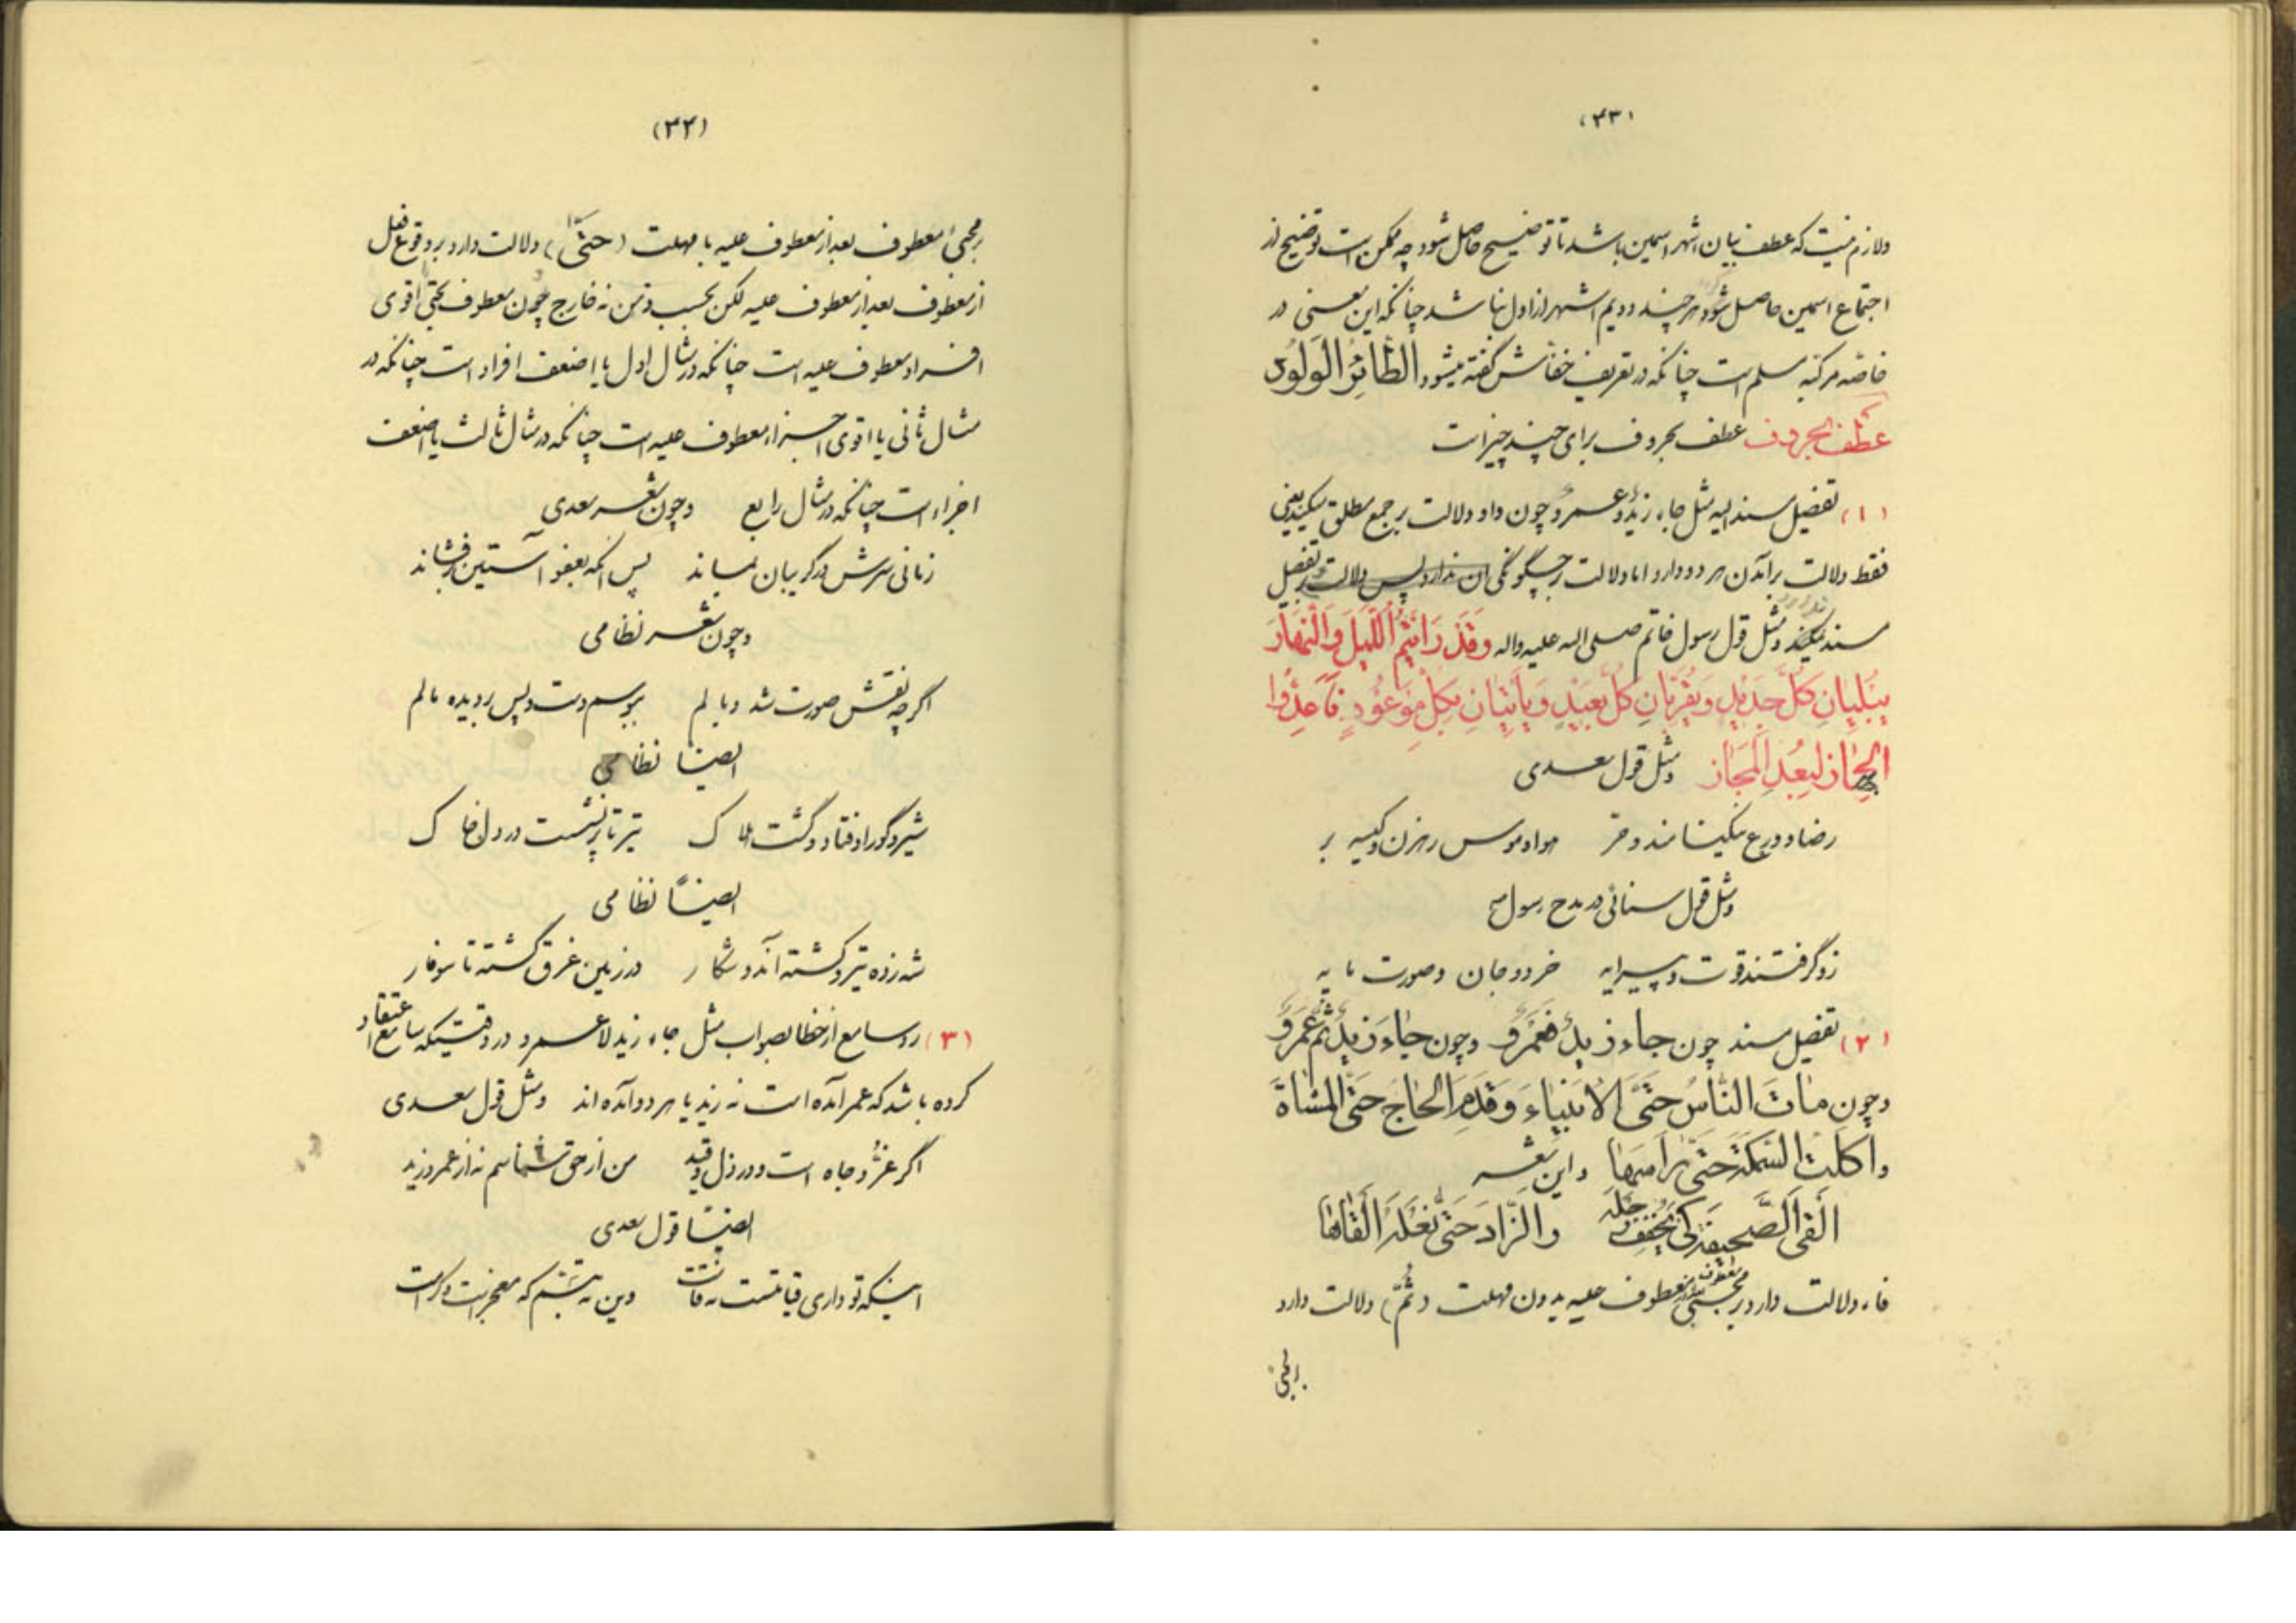 (۳۳)
ولازم نیست که عطف بیان اشهر اسمین باشد تا توضیح حاصل شود چه ممکن است توضیح از
اجتماع اسمین حاصل شود هر چند دویم اشهر از اول نباشد چنانکه این معنی در
خاصّه مرکبه مسلم است چنانکه در تعریف خفّاش گفته میشود الطّائِرُ الوَلُودُ
عطف بحروف عطف بحروف برای چند چیز است
(۱) تفصیل مسند الیه مثل جاء زیدٌ وعمروٌ چون واو دلالت بر جمع مطلق میکند یعنی
فقط دلالت بر آمدن هر دو دارد اما دلالت بر چگونگی آن ندارد پس دلالت بر تفصیل
مسند نمیکند ومثل قول رسول خاتم صلی الله علیه واله وَقَدْ رَأَیْتُمُ اللَّیْلَ وَالنَّهَارَ
یُبْلِیَانِ کُلَّ جَدِیدٍ وَیُقَرِّبَانِ کُلَّ بَعِیدٍ وَیَأْتِیَانِ بِکُلِّ مَوْعُودٍ فَأَعِدُّوا
الجِهَازَ لِبُعْدِ الْمَجَازِ ومثل قول سعدی
رضا و ورع نیکنامند و حر هوا و هوس رهزن و کیسه بر
ومثل قول سنائی در مدح رسول ص
زو گرفتند قوت و پیرایه خرد و جان و صورت مایه
(۲) تفصیل مسند چون جاء زیدٌ فعمروٌ وچون جَاءَ زَیدٌ ثُمَّ عَمروٌ
وچون مَاتَ النَّاسُ حَتَّی الاَنبِیَاءَ وَقَدِمَ الحَاجُّ حَتَّی المُشَاةَ
واَکَلتُ السَّمَکَةَ حَتَّی رَاسَهَا واین شعر
اَلقَی الصَّحِیفَةَ کَی یُخَفِّفَ رَحلَهُ والزَّادَ حَتَّی نَعلَهُ اَلقَاهَا
فاء دلالت دارد بر مجیئ معطوف بعد از معطوف علیه بدون مهلت و(ثُمَّ) دلالت دارد
بر مجیئ
(۳۴)
بر مجیئ معطوف بعد از معطوف علیه با مهلت (حَتَّی) دلالت دارد بر وقوع فعل
از معطوف بعد از معطوف علیه لکن بحسب ذهن نه خارج چون معطوف بحتّی اقوی
افراد معطوف علیه است چنانکه در مثال اول یا اضعف افراد است چنانکه در
مثال ثانی یا اقوی اجزاء معطوف علیه است چنانکه در مثال ثالث یا اضعف
اجزاء است چنانکه در مثال رابع وچون شعر سعدی
زمانی سرش در گریبان بماند پس آنکه بعفو آستین برفشاند
وچون شعر نظامی
اگر چه نقش صورت شد وبالم ببوسم دست و پس بر دیده مالم
ایضاً نظامی
شیر و گور اوفتاد و گشت هلاک تیر تا پر نشست در دل خاک
ایضاً نظامی
شه زده تیر و کشته آندو شکار در زمین غرق گشته تا سوفار
(۳) ردّ سامع از خطا بصواب مثل جاء زید لا عمرو در وقتیکه سامع اعتقاد
کرده باشد که عمر آمده است نه زید یا هر دو آمده اند ومثل قول سعدی
اگر عزّ و جاه است و در ذلّ و قید من از حق شناسم نه از عمرو زید
ایضاً قول سعدی
اینکه تو داری قیامتست نه قامت وین نه تبسّم که معجز است و کرامت